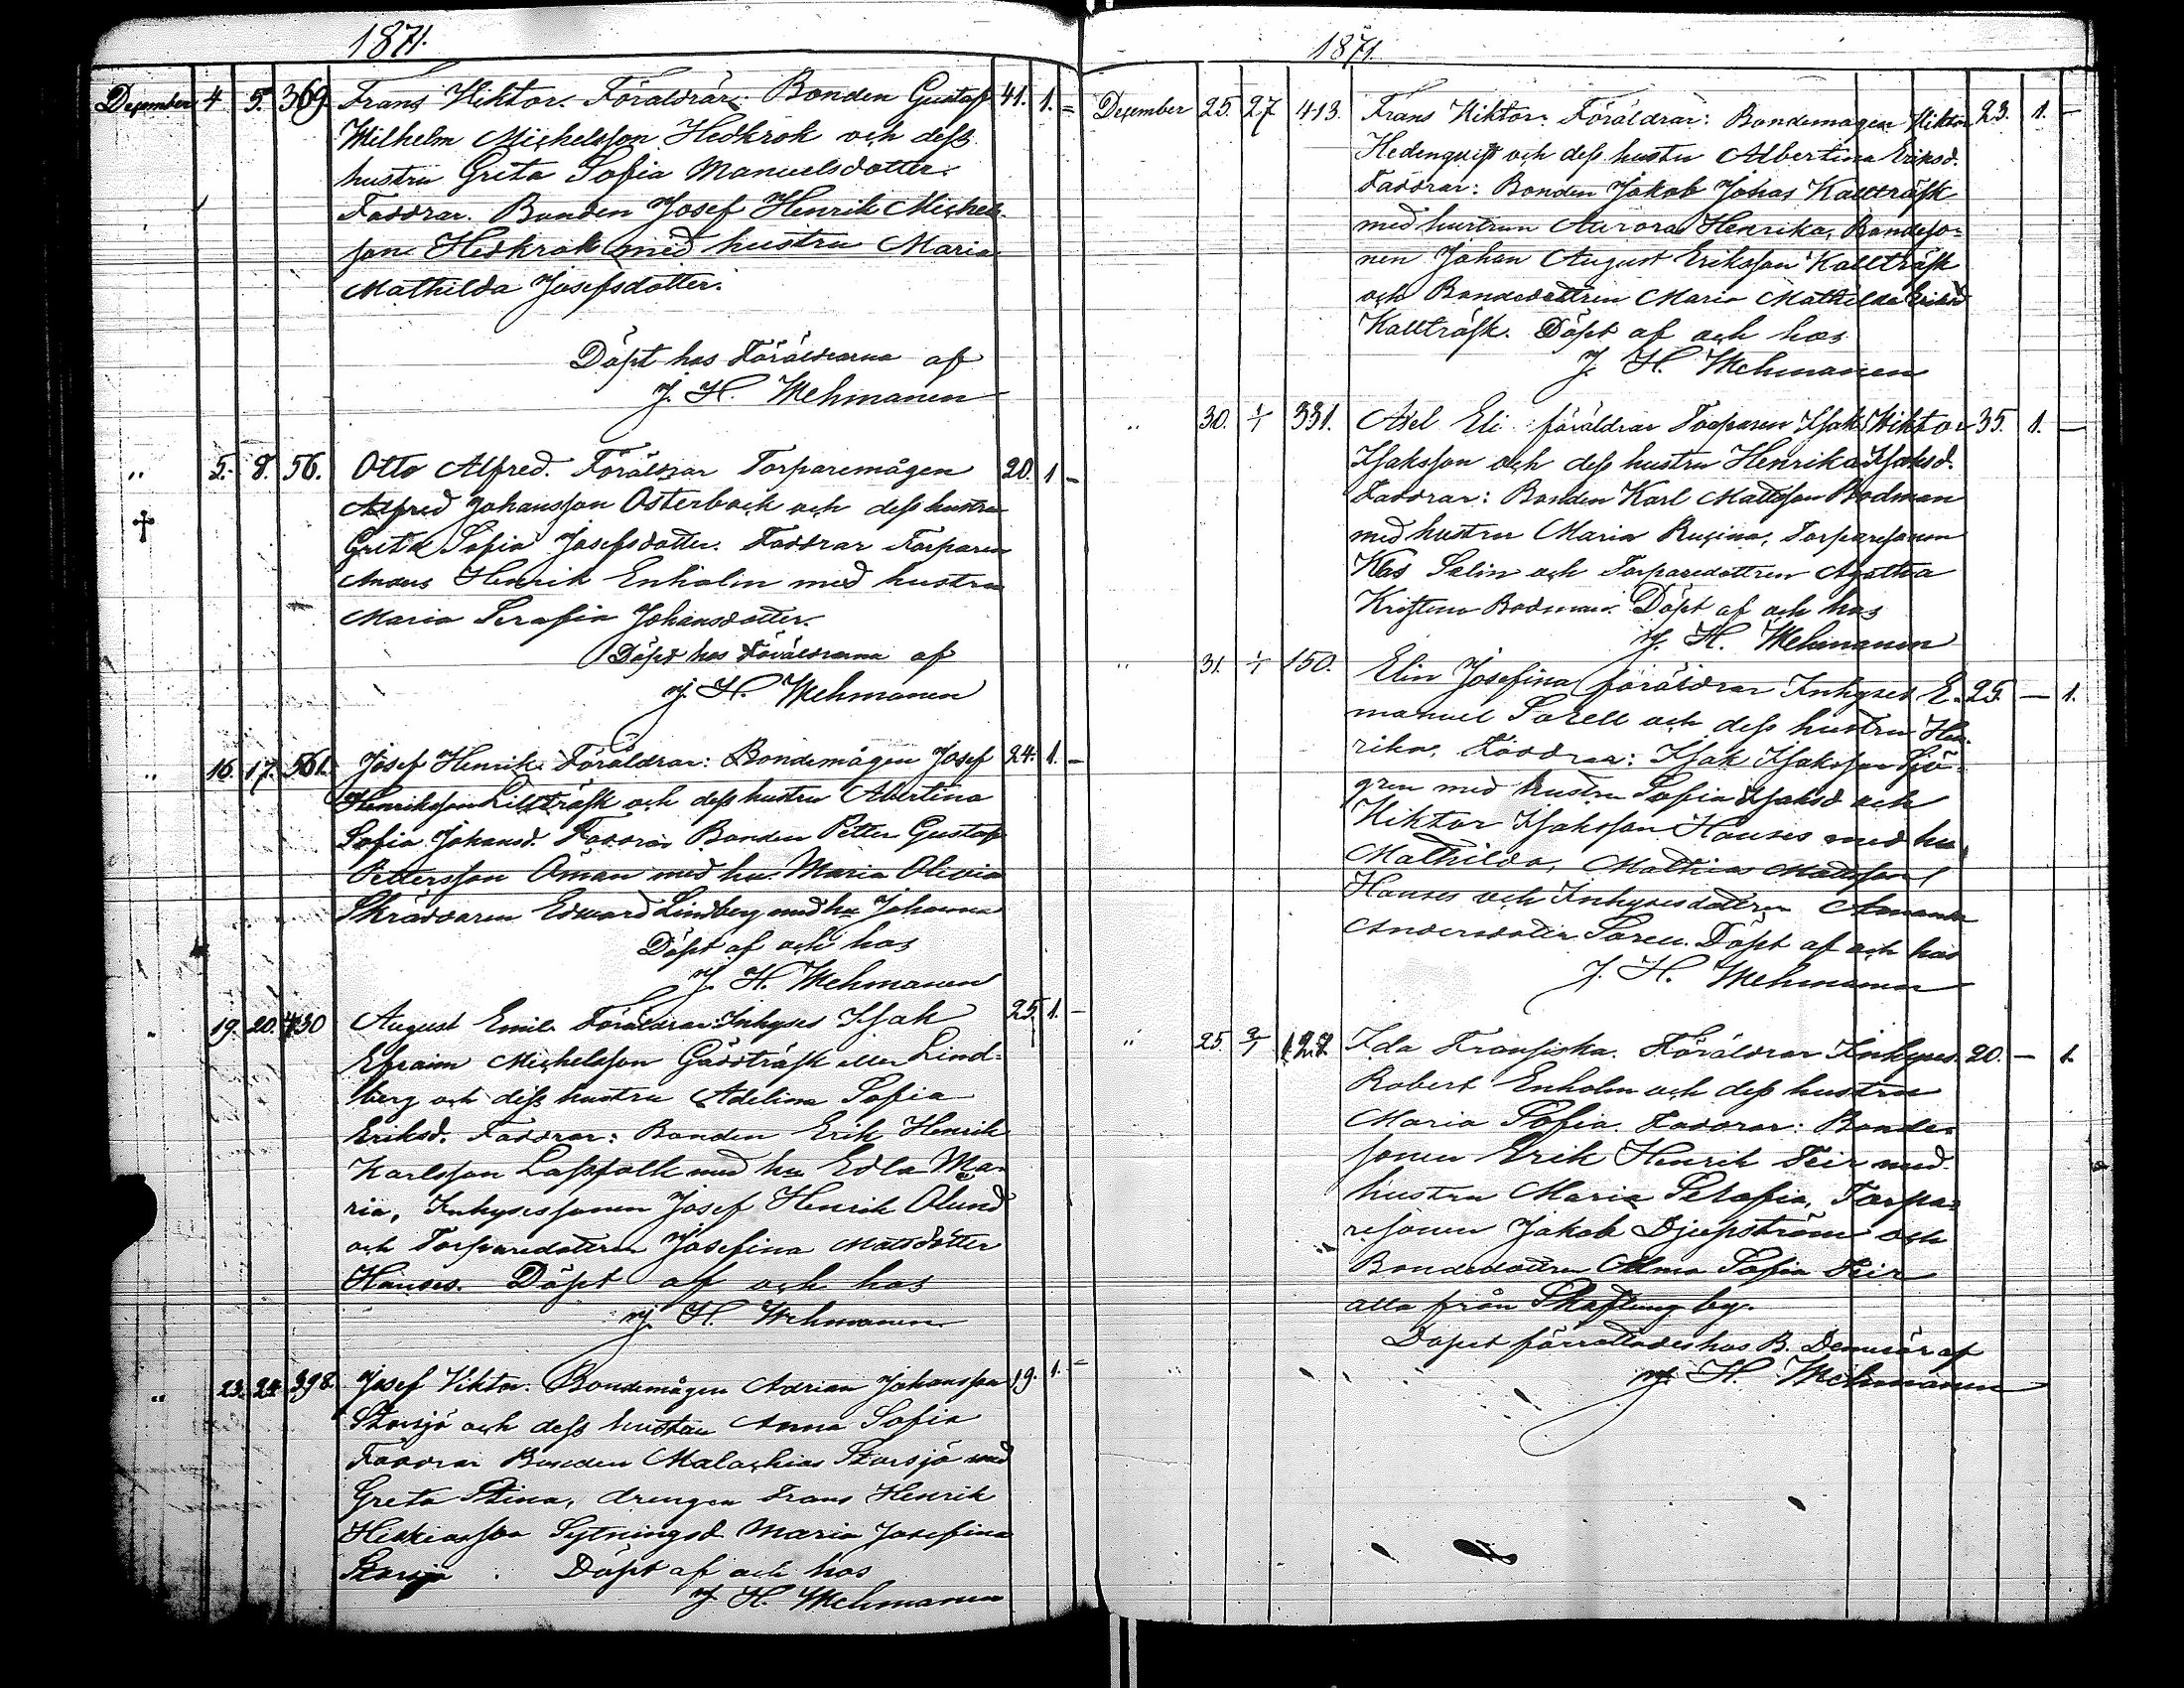 1871.
December 4 5. 369 Frans Wiktor. Föräldrar: Bonden Gustaf 41. 1. =
Wilhelm Michelsson Hedkrok och dess
hustru Greta Sofia Manuelsdotter.
Faddrar. Bonden Josef Henrik Michels-
son Hedkrok med hustru Maria
Mathilda Josefsdotter.
Döpt hos Föräldrarna af
J. H. Wehmanen
" 5. 8. 56. Otto Alfred. Föräldrar Torparemågen 20. 1 -
Alfred Johansson Österback och dess hustru
Greta Sofia Josefsdotter. Faddrar Torparen
Anders Henrik Enholm med hustru
Maria Serafia Johansdotter.
Döpt hos Föräldrarna af
J. H. Wehmanen
" 16. 17. 561. Josef Henrik. Föräldrar: Bondemågen Josef 24. 1. -
Henriksson Lillträsk och dess hustru Albertina
Sofia Johansd. Faddrar Bonden Petter Gustaf
Pettersson Öman med hu. Maria Olivia
Skräddaren Edward Lindberg med hu Johanna
Döpt af och hos
J. H. Wehmanen
" 19. 20. 430 August Emil. Föräldrar: Inhyses Isak 25. 1. -
Efraim Michelsson Gäddträsk eller Lind-
berg och dess hustru Adelina Sofia
Eriksd. Faddrar: Bonden Erik Henrik
Karlsson Lassfolk med hu Edla Ma-
ria, Inhysessonen Josef Henrik Ölund
och Torparedottern Josefina Matsdotter
Hanses. Döpt af och hos
J. H. Wehmanen.
" 23. 24. 398. Josef Viktor. Bondemågen Adrian Johansson 19. 1. =
Storsjö och dess hustru Anna Sofia
Faddrar Bonden Malachias Storsjö med
Greta Stina, drengen Frans Henrik
Hiskiasson Sytningsd. Maria Josefina
Storsjö. Döpt af och hos
J. H. Wehmanen
1871.
December 25. 27 413. Frans Viktor. Föräldrar: Bondemågen Viktor 23. 1. -
Hedenqvist och dess hustru Albertina Eriksd.
Faddrar: Bonden Jakob Johas Kallträsk
med hustrun Aurora Henrika, Bondeso-
nen Johan August Eriksson Kallträsk
och Bondedottren Maria Mathilda Eriksd
Kallträsk. Döpt af och hos
J. H. Wehmanen
" 30. 1/1 331. Axel Eli föräldrar Torparen Isak Wiktor 35. 1. -
Isaksson och dess hustru Henrika Isaksd.
Faddrar: Bonden Karl Mattsson Bodman
med hustru Maria Rusina, Torparesonen
Klas Selin och Torparedottren Agatha
Kristina Bodman. Döpt af och hos
J. H. Wehmanen
" 31. 1/1 150. Elin Josefina föräldrar Inhyses E- 25. - 1.
manuel Sorell och dess hustru Hen-
rika. Faddrar: Isak Isaksson Sjö-
gren med hustru Sofia Isaksd och
Viktor Isaksson Hanses med hu.
Mathilda, Mathias Mattsson
Hanses och Inhysesdottren Amanda
Andersdotter Sorell. Döpt af och hos
J. H. Wehmanen
" 25. 2/1 122 Ida Fransiska. Föräldrar Inhyses 20. - 1.
Robert Enholm och dess hustru
Maria Sofia. Faddrar: Bonde-
sonen Erik Henrik Teir med
hustru Maria Serafia, Torpa-
resonen Jakob Djupström och
Bondedottren Alma Sofia Teir
alla från Skaftung by.
Dopet förrättades hos B. af
J. H. Wehmanen